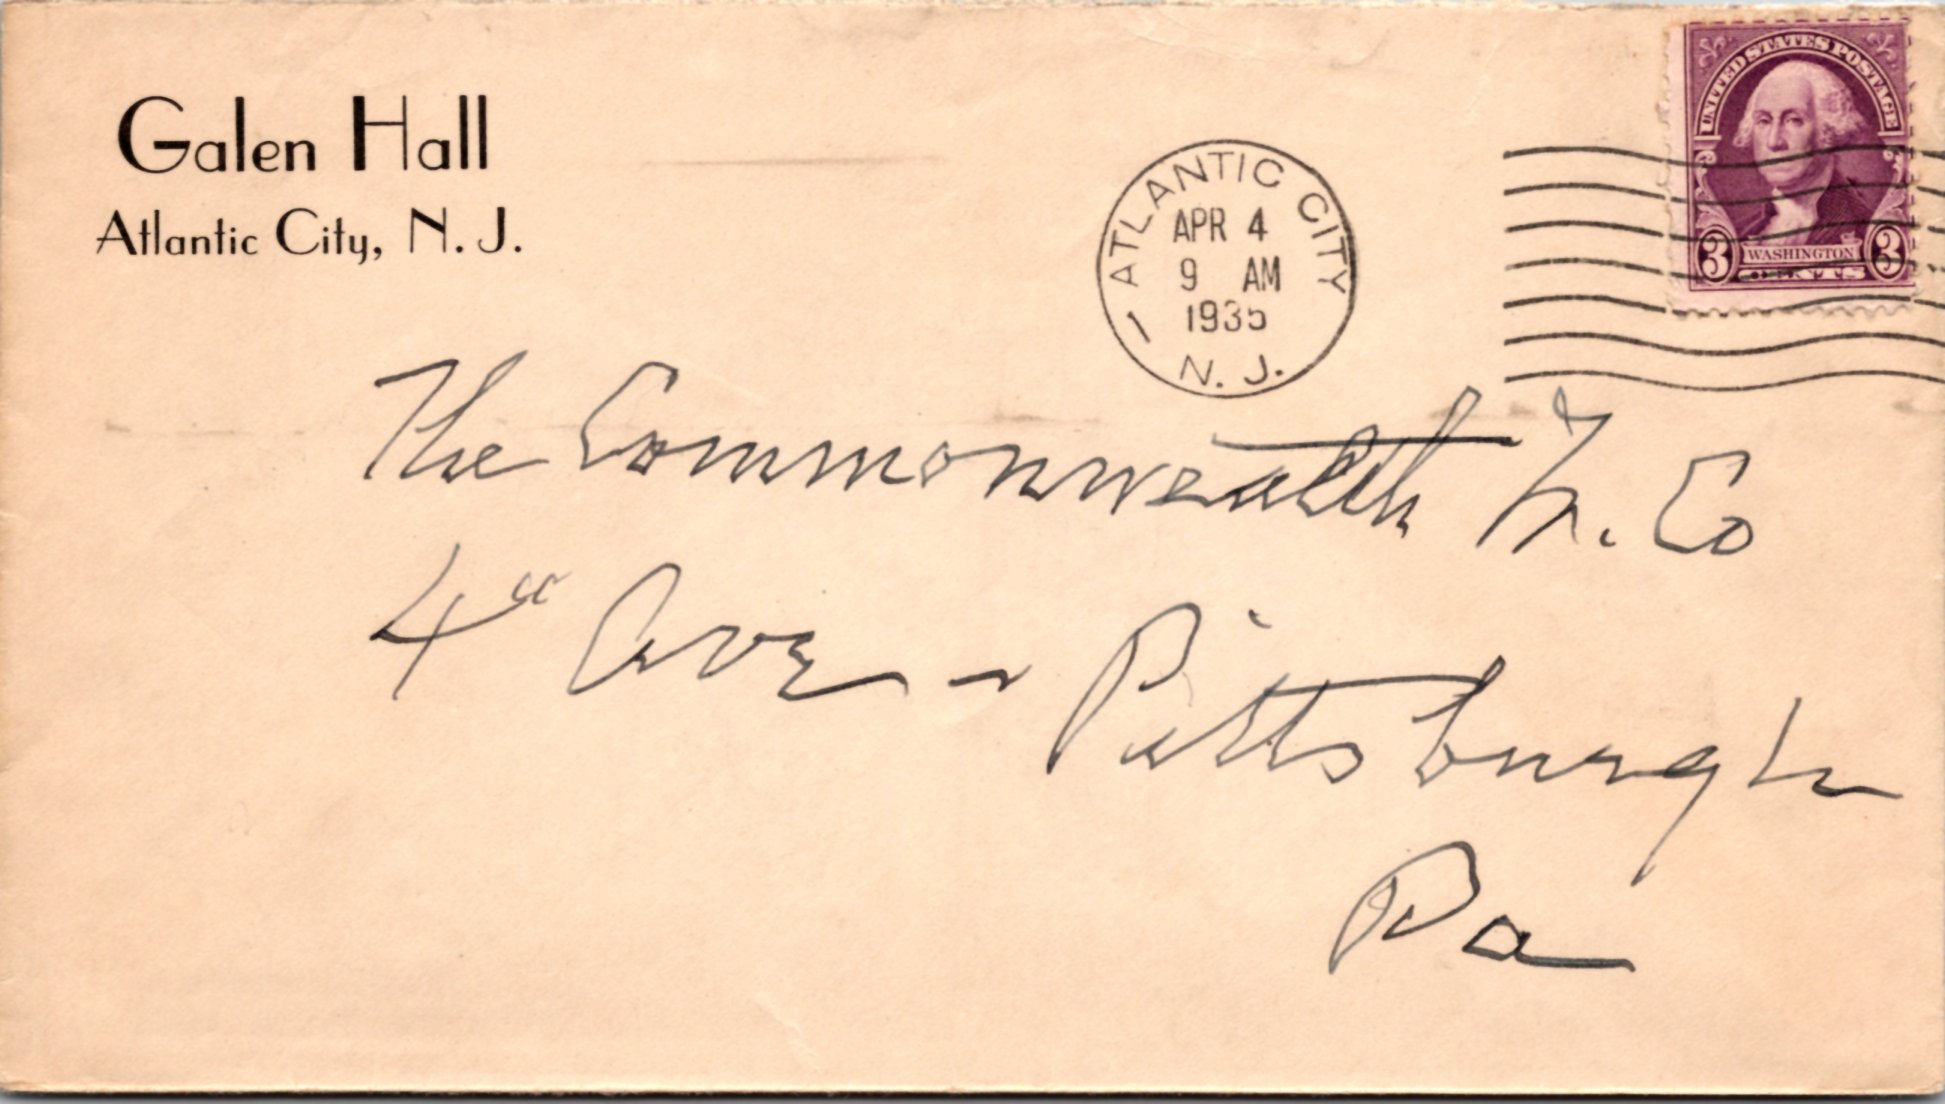 Galen Hall
Atlantic City, N. J.
ATLANTIC CITY
APR 4
9 AM
1935
1
N. J.
UNITED STATES POSTAGE
3 WASHINGTON 3
CENTS
The Commonwealth Tr. Co
4th Ave - Pittsburgh
Pa